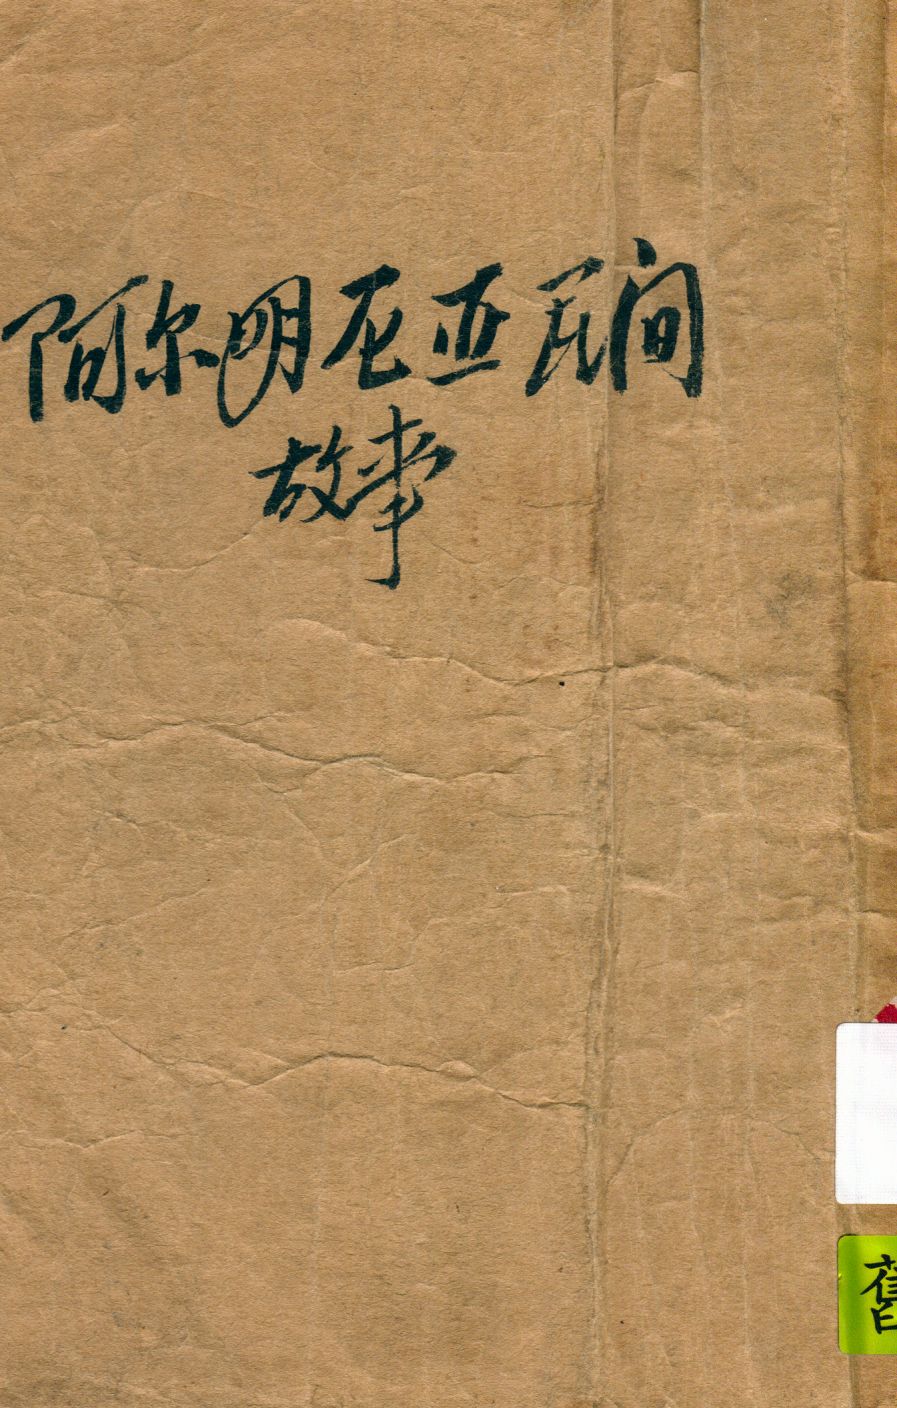 阿尔明尼亚民间
故事
舊